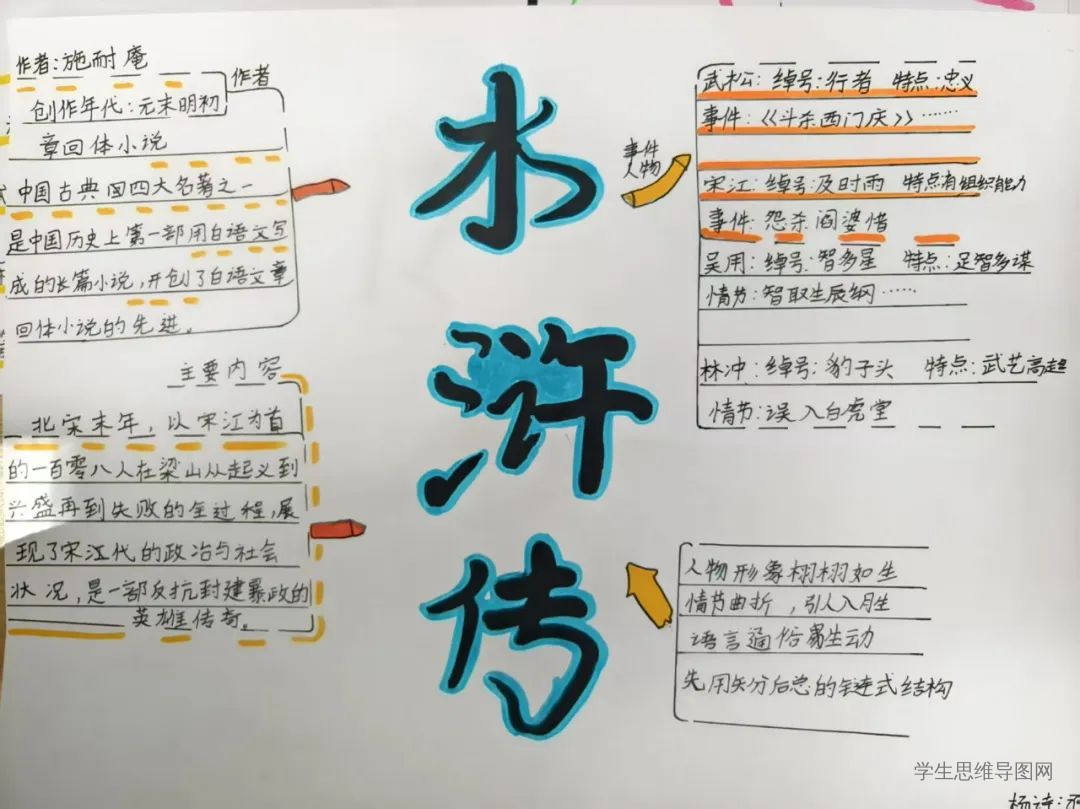 作者:施耐庵
作者
创作年代:元末明初
章回体小说
中国古典四大名著之一
是中国历史上第一部用白话文写
成的长篇小说,开创了白话文章
回体小说的先进。
主要内容
北宋末年,以宋江为首
的一百零八人在梁山从起义到
兴盛再到失败的全过程,展
现了宋江代的政治与社会
状况,是一部反抗封建暴政的
英雄传奇。
水
浒
传
事件
人物
武松:绰号:行者 特点:忠义
事件:《斗杀西门庆》……
宋江:绰号:及时雨 特点有组织能力
事件:怨杀阎婆惜
吴用:绰号:智多星 特点:足智多谋
情节:智取生辰纲……
林冲:绰号:豹子头 特点:武艺高超
情节:误入白虎堂
人物形象栩栩如生
情节曲折,引人入胜
语言通俗易生动
先用分后总的链式结构
学生思维导图网
杨诗